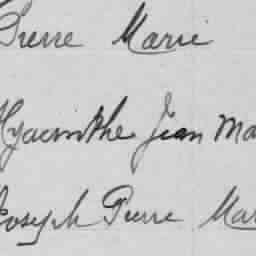 Pierre Marie
Hyacinthe Jean Ma
Joseph Pierre Mar